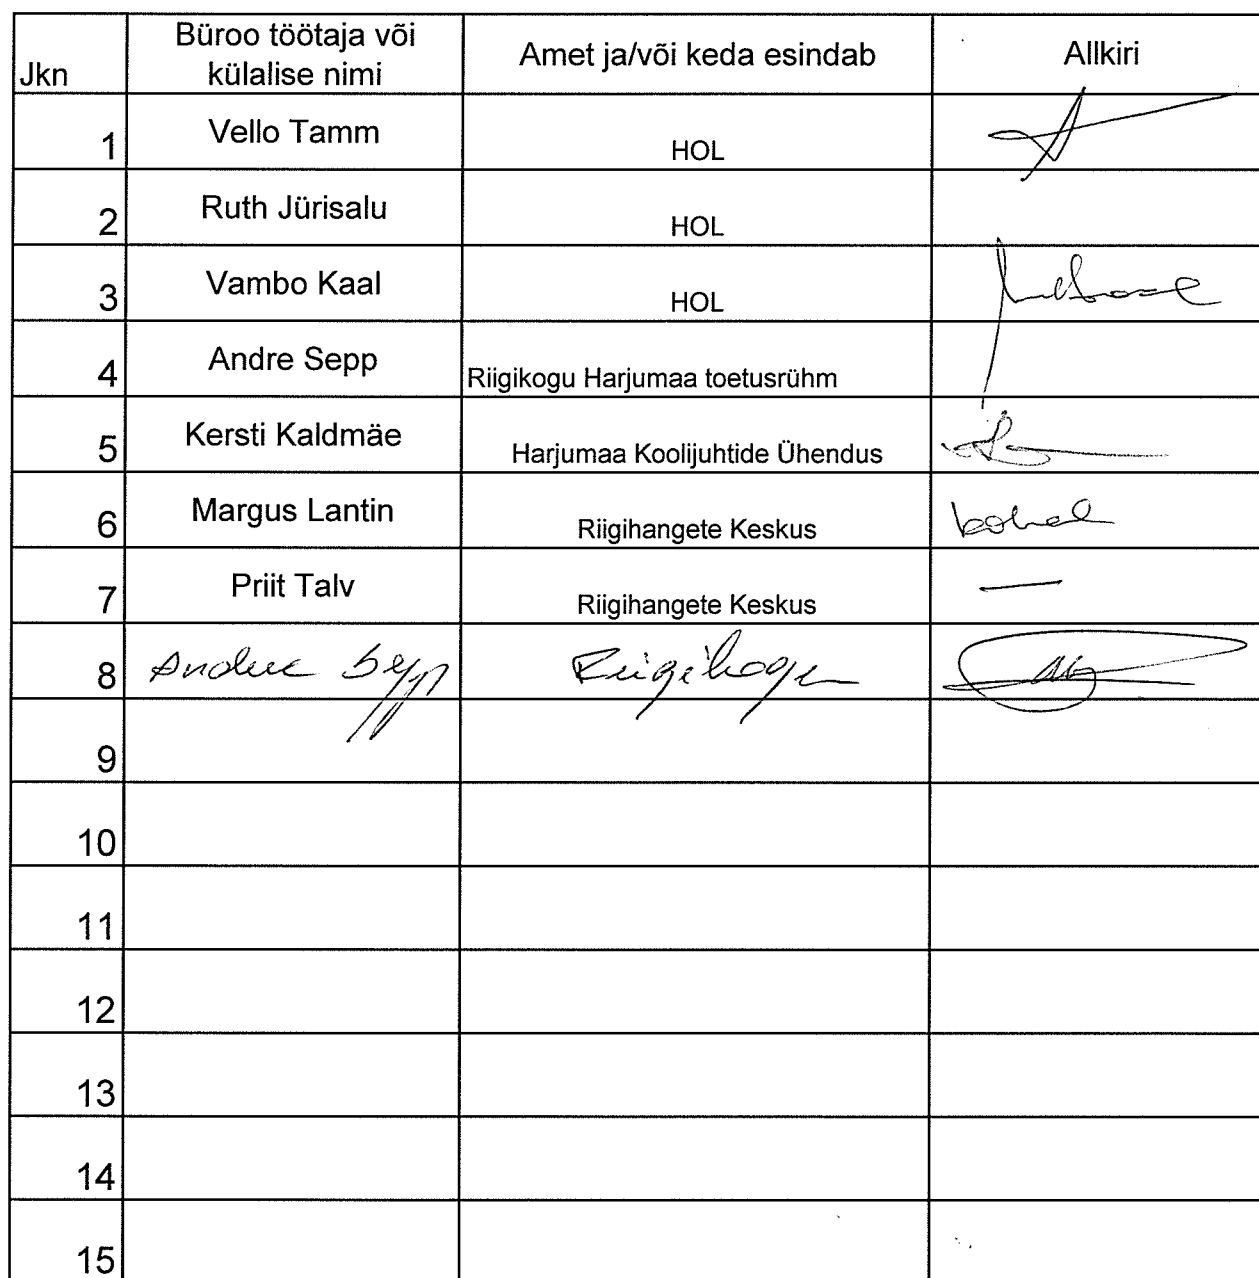 Jkn Büroo töötaja või külalise nimi Amet ja/või keda esindab Allkiri
1 Vello Tamm HOL
2 Ruth Jürisalu HOL
3 Vambo Kaal HOL
4 Andre Sepp Riigikogu Harjumaa toetusrühm
5 Kersti Kaldmäe Harjumaa Koolijuhtide Ühendus
6 Margus Lantin Riigihangete Keskus kohal
7 Priit Talv Riigihangete Keskus —
8 Andre Sepp Riigikogu
9
10
11
12
13
14
15